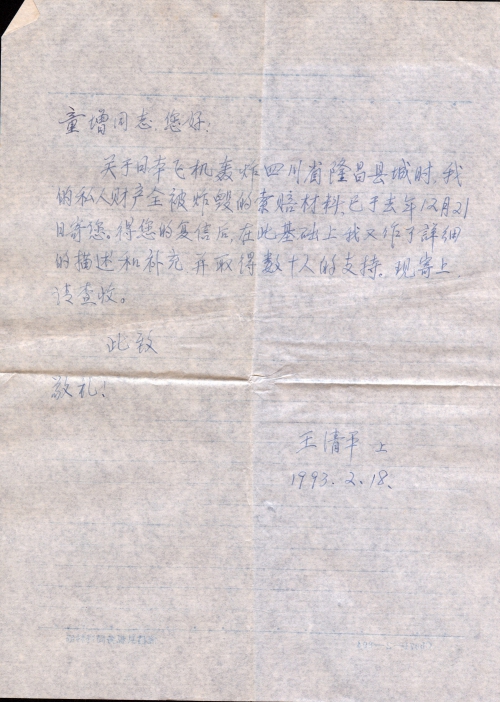 童增同志，您好！
关于日本飞机轰炸四川省隆昌县城时，我
的私人财产全被炸毁的索赔材料，已于去年12月21
日寄您。得您的复信后，在此基础上我又作了详细
的描述和补充并取得数十人的支持。现寄上
请查收。
此致
敬礼！
王清平 上
1993.2.18.